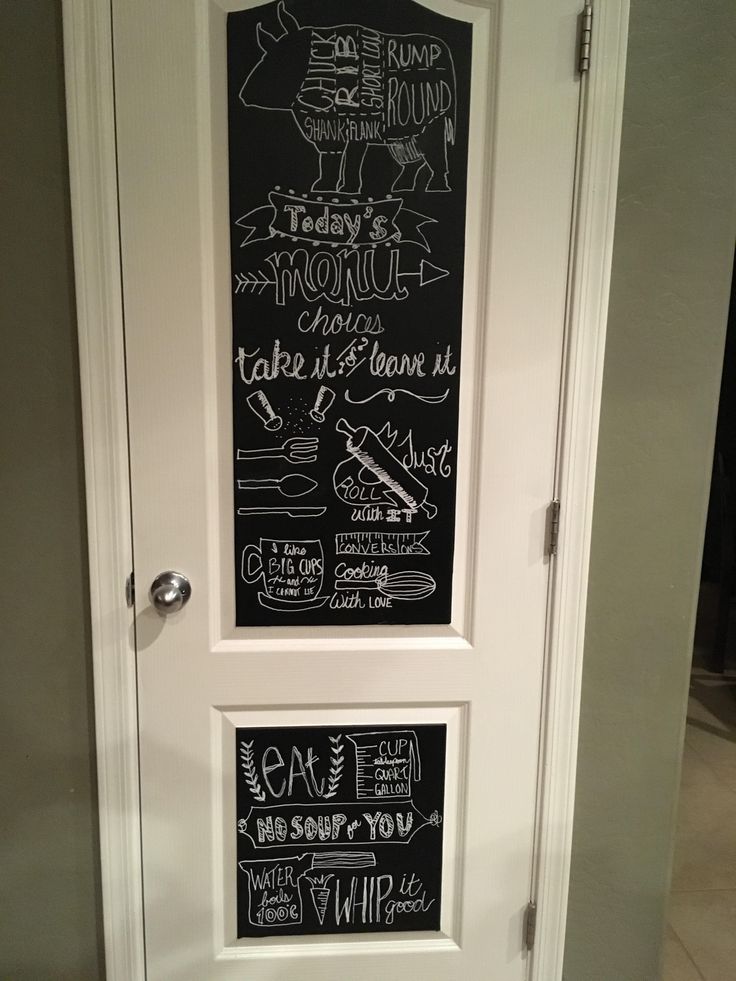 CHUCK
RIB
SHORTLOIN
RUMP
ROUND
SHANK
FLANK
Today's
menu
choices
take it or leave it
Just
ROLL
with IT
I like
BIG CUPS
and
I CANNOT LIE
CONVERSIONS
Cooking
With LOVE
EAt
CUP
tablespoon
QUART
GALLON
NO SOUP for YOU
WATER
boils
100°C
WHIP it
good